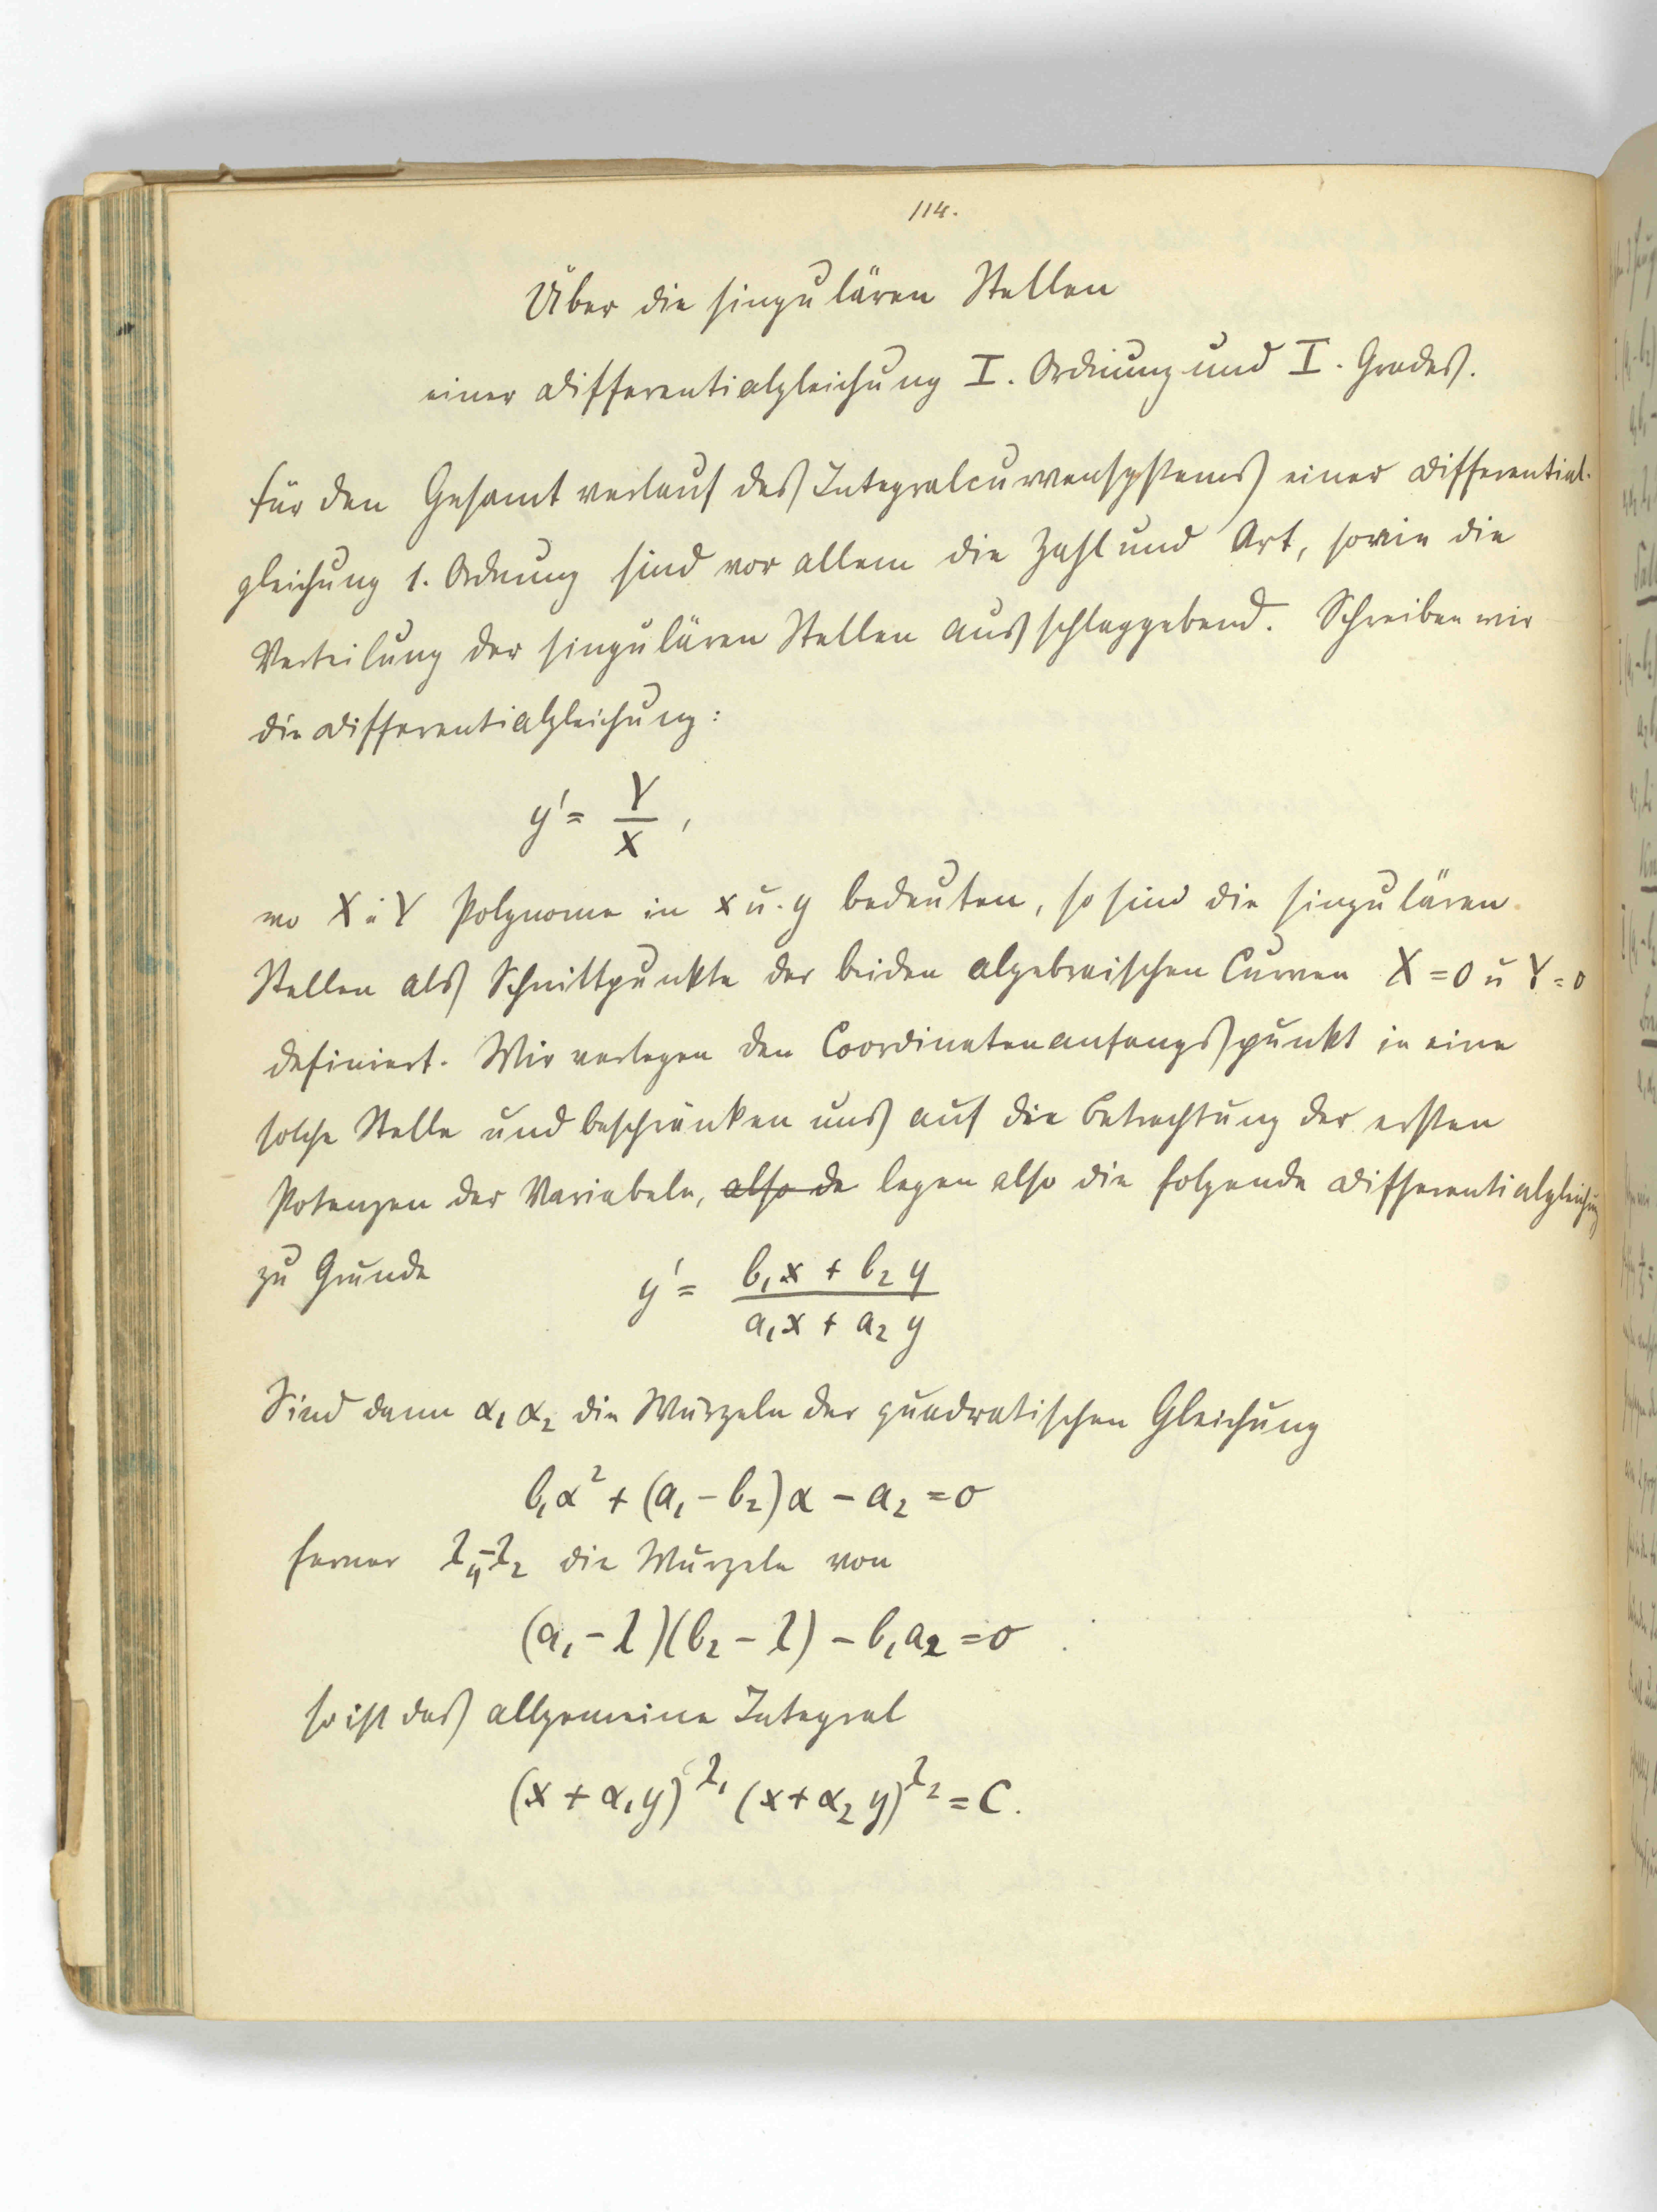 114.
Über die singulären Stellen
einer Differentialgleichung I. Ordnung und I. Grades.
Für den Gesamtverlauf des Integralcurvensystems einer Differential-
gleichung 1. Ordnung sind vor allem die Zahl und Art, sowie die
Verteilung der singulären Stellen ausschlaggebend. Schreiben wir
die Differentialgleichung:
y' = Y/X ,
wo X u Y Polynome in x u. y bedeuten, so sind die singulären
Stellen als Schnittpunkte der beiden algebraischen Curven X = 0 u Y = 0
definiert. Wir verlegen den Coordinatenanfangspunkt in eine
solche Stelle und beschränken uns auf die Betrachtung der ersten
Potenzen der Variabeln, also de legen also die folgende Differentialgleichung
zu Grunde y' = (b₁x + b₂y)/(a₁x + a₂y)
Sind dann α₁ α₂ die Wurzeln der quadratischen Gleichung
b₁α² + (a₁ − b₂)α − a₂ = 0
ferner λ₁, −λ₂ die Wurzeln von
(a₁ − λ)(b₂ − λ) − b₁a₂ = 0
so ist das allgemeine Integral
(x + α₁y)^λ₁ (x + α₂y)^λ₂ = C.